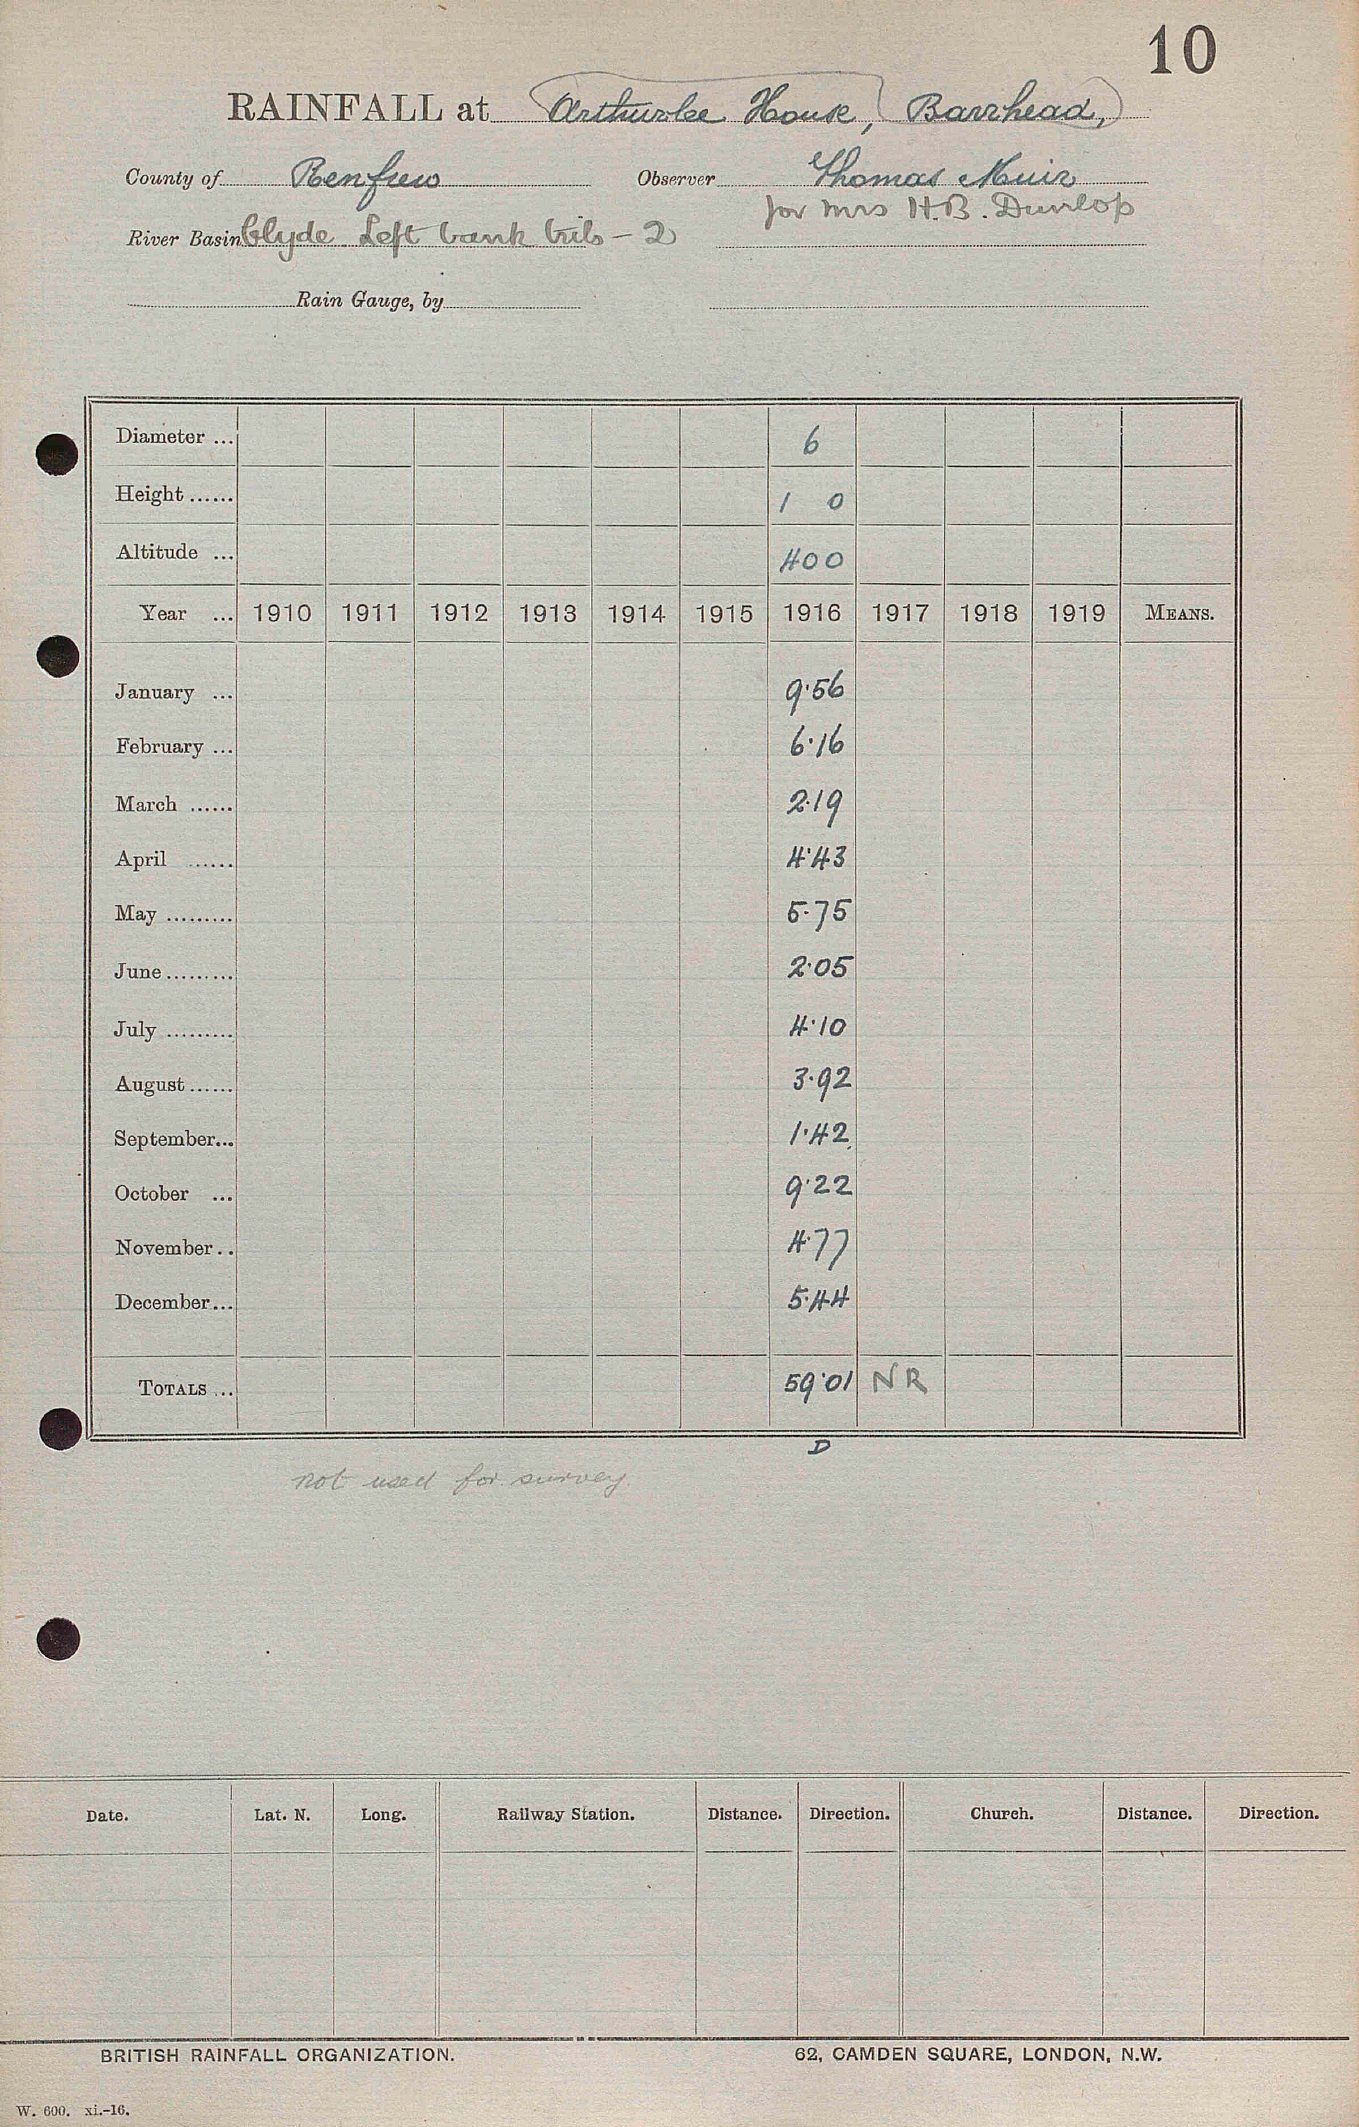 10
RAINFALL at Arthurlee House, Barrhead,
County of Renfrew Observer Thomas Muir
for Mrs H.B. Dunlop
River Basin Clyde Left bank tribs - 2
Rain Gauge, by
Diameter ... 6
Height ...... 1 0
Altitude ... 400
Year ... 1910 1911 1912 1913 1914 1915 1916 1917 1918 1919 MEANS.
January ... 9.56
February ... 6.16
March ...... 2.19
April ...... 4.43
May ......... 5.75
June ......... 2.05
July ......... 4.10
August ...... 3.92
September... 1.42
October ... 9.22
November .. 4.77
December ... 5.44
TOTALS ... 59.01 NR
D
not used for survey
Date. Lat. N. Long. Railway Station. Distance. Direction. Church. Distance. Direction.
BRITISH RAINFALL ORGANIZATION. 62, CAMDEN SQUARE, LONDON, N.W.
W. 600. xi.-16.